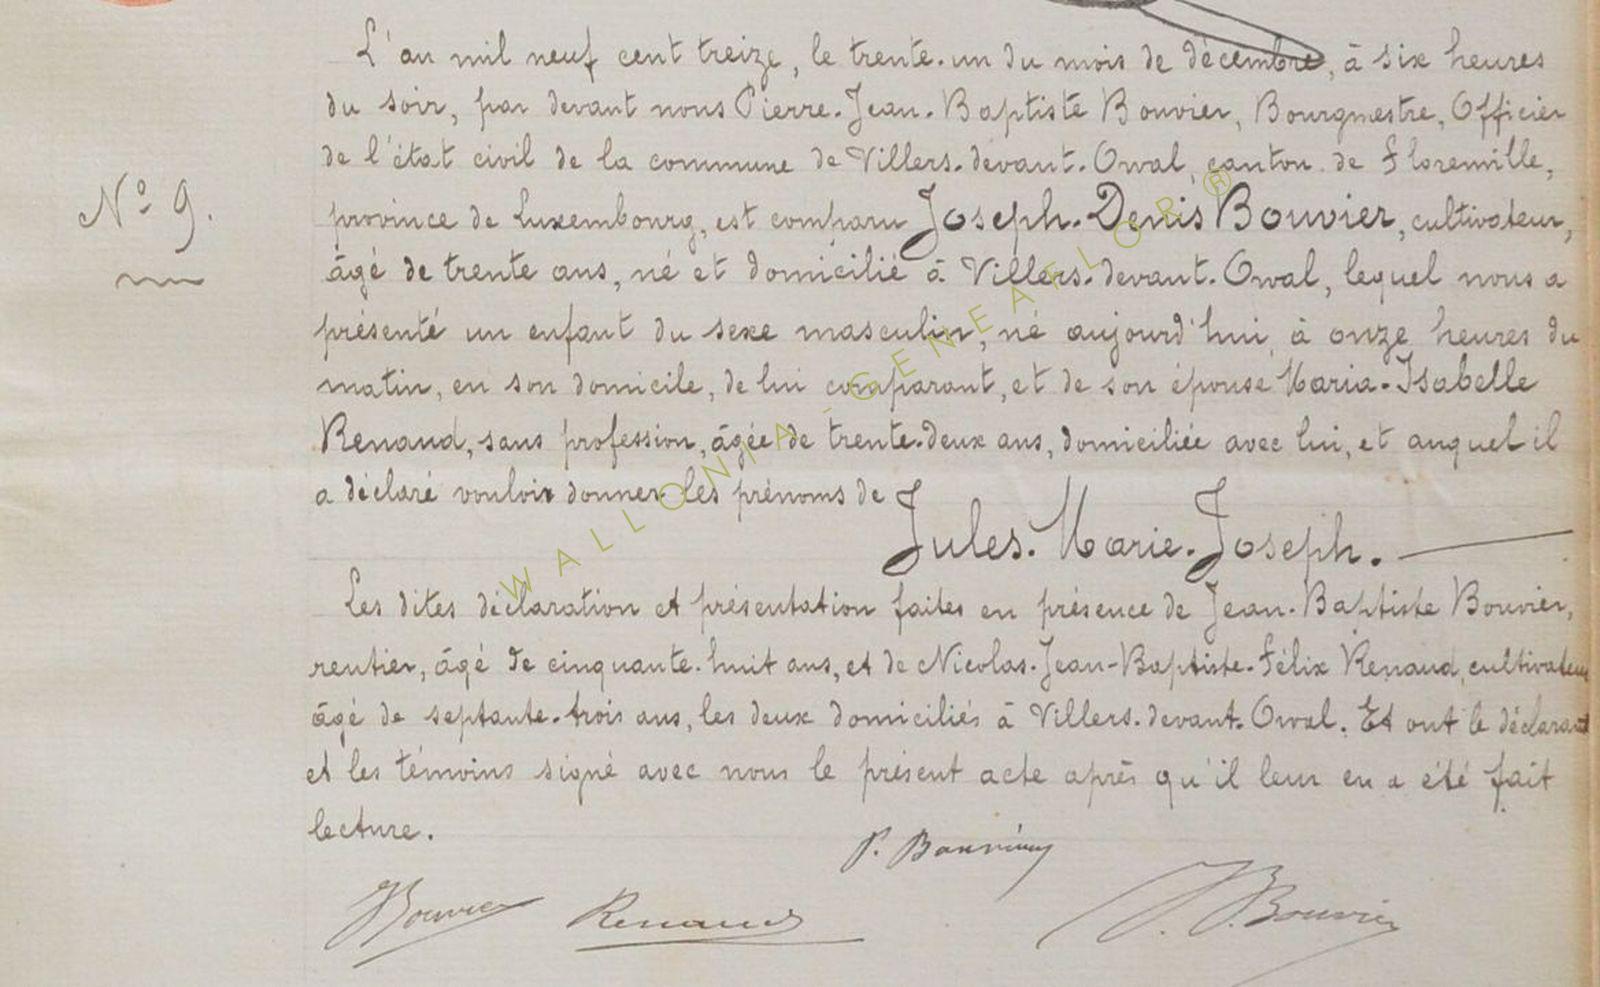 L'an mil neuf cent treize, le trente-un du mois de décembre, à six heures
du soir, par devant nous Pierre-Jean-Baptiste Bouvier, Bourgmestre, Officier
de l'état civil de la commune de Villers-devant-Orval, canton de Florenville,
N° 9.
province de Luxembourg, est comparu Joseph-Denis Bouvier, cultivateur,
âgé de trente ans, né et domicilié à Villers-devant-Orval, lequel nous a
présenté un enfant du sexe masculin, né aujourd'hui, à onze heures du
matin, en son domicile, de lui comparant, et de son épouse Maria-Isabelle
Renaud, sans profession, âgée de trente-deux ans, domiciliée avec lui, et auquel il
a déclaré vouloir donner les prénoms de
Jules-Marie-Joseph.
Les dites déclaration et présentation faites en présence de Jean-Baptiste Bouvier,
rentier, âgé de cinquante-huit ans, et de Nicolas-Jean-Baptiste-Félix Renaud, cultivateur
âgé de septante-trois ans, les deux domiciliés à Villers-devant-Orval. Et ont le déclarant
et les témoins signé avec nous le présent acte après qu'il leur en a été fait
lecture.
P. Bouvier
JBouvier Renaud J. Bouvier
WALLONIA-GENEAFLOR®